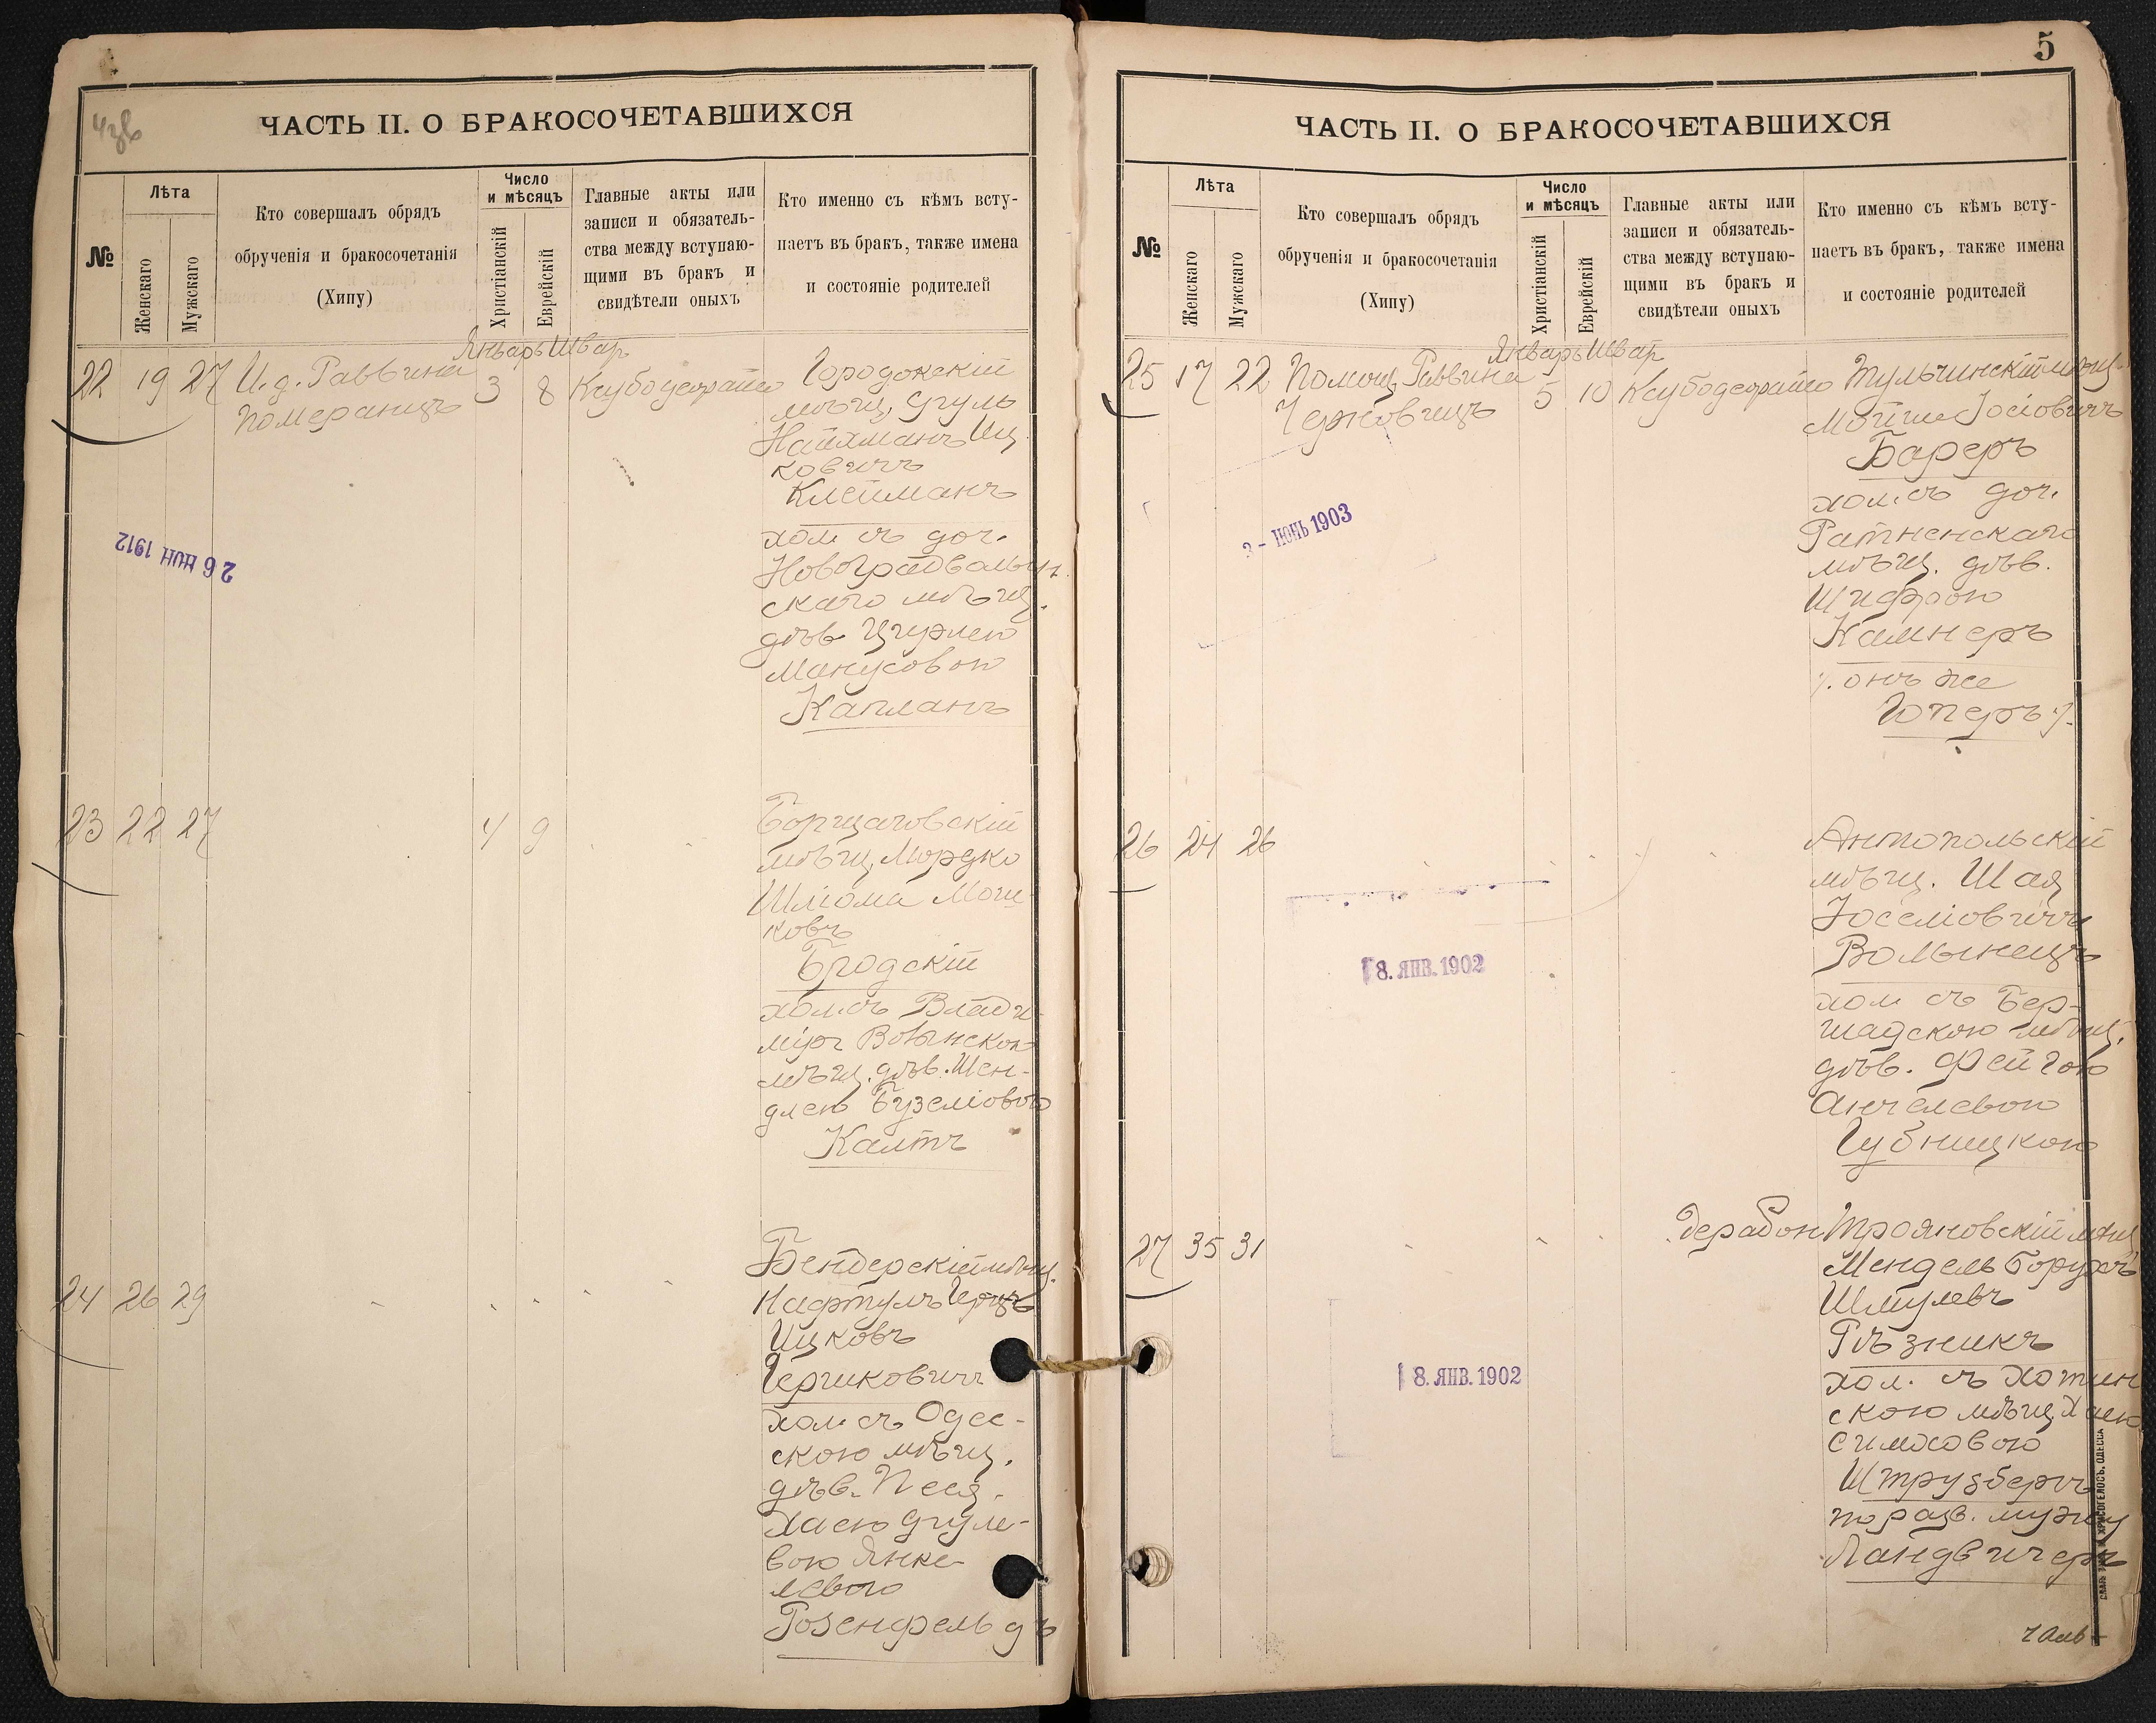 4зв
ЧАСТЬ II. О БРАКОСОЧЕТАВШИХСЯ
№
Лѣта
Женскаго
Мужскаго
Кто совершалъ обрядъ
обрученія и бракосочетанія
(Хипу)
Число
и мѣсяцъ
Христіанскій
Еврейскій
Главные акты или
записи и обязатель-
ства между вступаю-
щими въ бракъ и
свидѣтели оныхъ
Кто именно съ кѣмъ всту-
паетъ въ бракъ, также имена
и состояніе родителей
Январь Шват
22 19 27 И. д. Раввина 3 8 Ксубодеорайсо Городокскій
Померанцъ
мѣщ. Сруль
Найхманъ Иц
ковичъ
Клейманъ
хол. съ доч.
Новоградволын
скаго мѣщ.
дѣв Цирлею
Манусовою
Капланъ
26 ИЮН 1912
23 22 27 4 9 Борщаговскій
мѣщ. Мордко
Шліома Мош-
ковъ
Бродскій
хол. съ Влади-
міръ Волынскою
мѣщ. дѣв. Шен-
длею Бузеліовою
Калтъ
24 26 29 Бендерскій мѣщ.
Нафтулъ Герцъ
Ицковъ
Гершковичъ
хол. съ Одес-
скою мѣщ.
дѣв. Песя-
Хаею Сруле-
вою Янке-
левою
Розенфельдъ
5
ЧАСТЬ II. О БРАКОСОЧЕТАВШИХСЯ
№
Лѣта
Женскаго
Мужскаго
Кто совершалъ обрядъ
обрученія и бракосочетанія
(Хипу)
Число
и мѣсяцъ
Христіанскій
Еврейскій
Главные акты или
записи и обязатель-
ства между вступаю-
щими въ бракъ и
свидѣтели оныхъ
Кто именно съ кѣмъ всту-
паетъ въ бракъ, также имена
и состояніе родителей
Январь Шват
25 17 22 Помощ. Раввина 5 10 Ксубодеорайсо Тульчинскій мѣщ.
Чержовицъ
Мойше Іосіовичъ
Бареръ
хол. съ доч.
Ратненскаго
мѣщ. дѣв.
Шифрою
Камнеръ
/. онъ же
Юперъ /.
3 - ИЮНЬ 1903
26 24 26 Антопольскій
мѣщ. Шая
Іоселіовичъ
Волынецъ
хол съ Бер-
шадскою мѣщ.
дѣв. Фейгою
Анчелевою
Губницкою
8. ЯНВ. 1902
27 35 31 дерабон Трояновскій мѣщ
Мендель Борухъ
Шмулевъ
Рѣзникъ
хол. съ Хотин
скою мѣщ. Хаею
Симосовою
Штрузбергъ
по разв. мужу
Ландвигеръ
8. ЯНВ. 1902